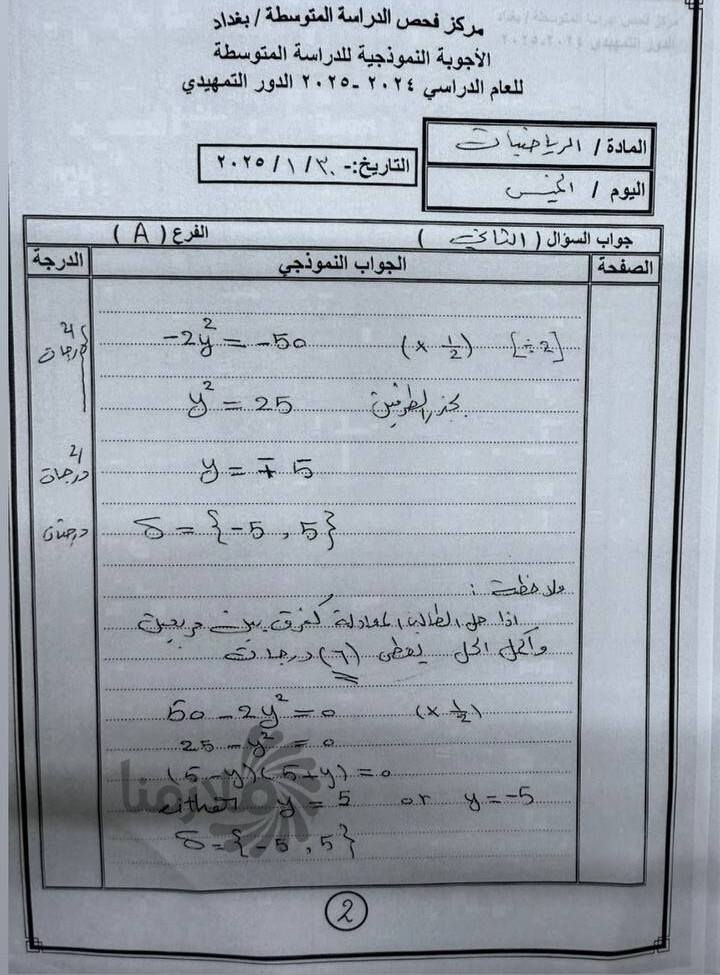 مركز فحص الدراسة المتوسطة / بغداد
الأجوبة النموذجية للدراسة المتوسطة
للعام الدراسي ٢٠٢٤ -٢٠٢٥ الدور التمهيدي
المادة / الرياضيات
التاريخ:- ٣٠ / ١ / ٢٠٢٥
اليوم / الخميس
جواب السؤال ( الثاني ) الفرع ( A )
الصفحة الجواب النموذجي الدرجة
-2y² = -50 (× 1/2) [÷2] درجات
y² = 25 بجذر الطرفين
y = ∓ 5 درجات
S = {-5 , 5} درجتان
ملاحظة :
اذا حل الطالب المعادلة كفرق بين مربعين
وأكمل الحل يعطى (٦) درجات
50 - 2y² = 0 (× 1/2)
25 - y² = 0
(5-y)(5+y) = 0
either y = 5 or y = -5
S = {-5 , 5}
ملازمنا
2